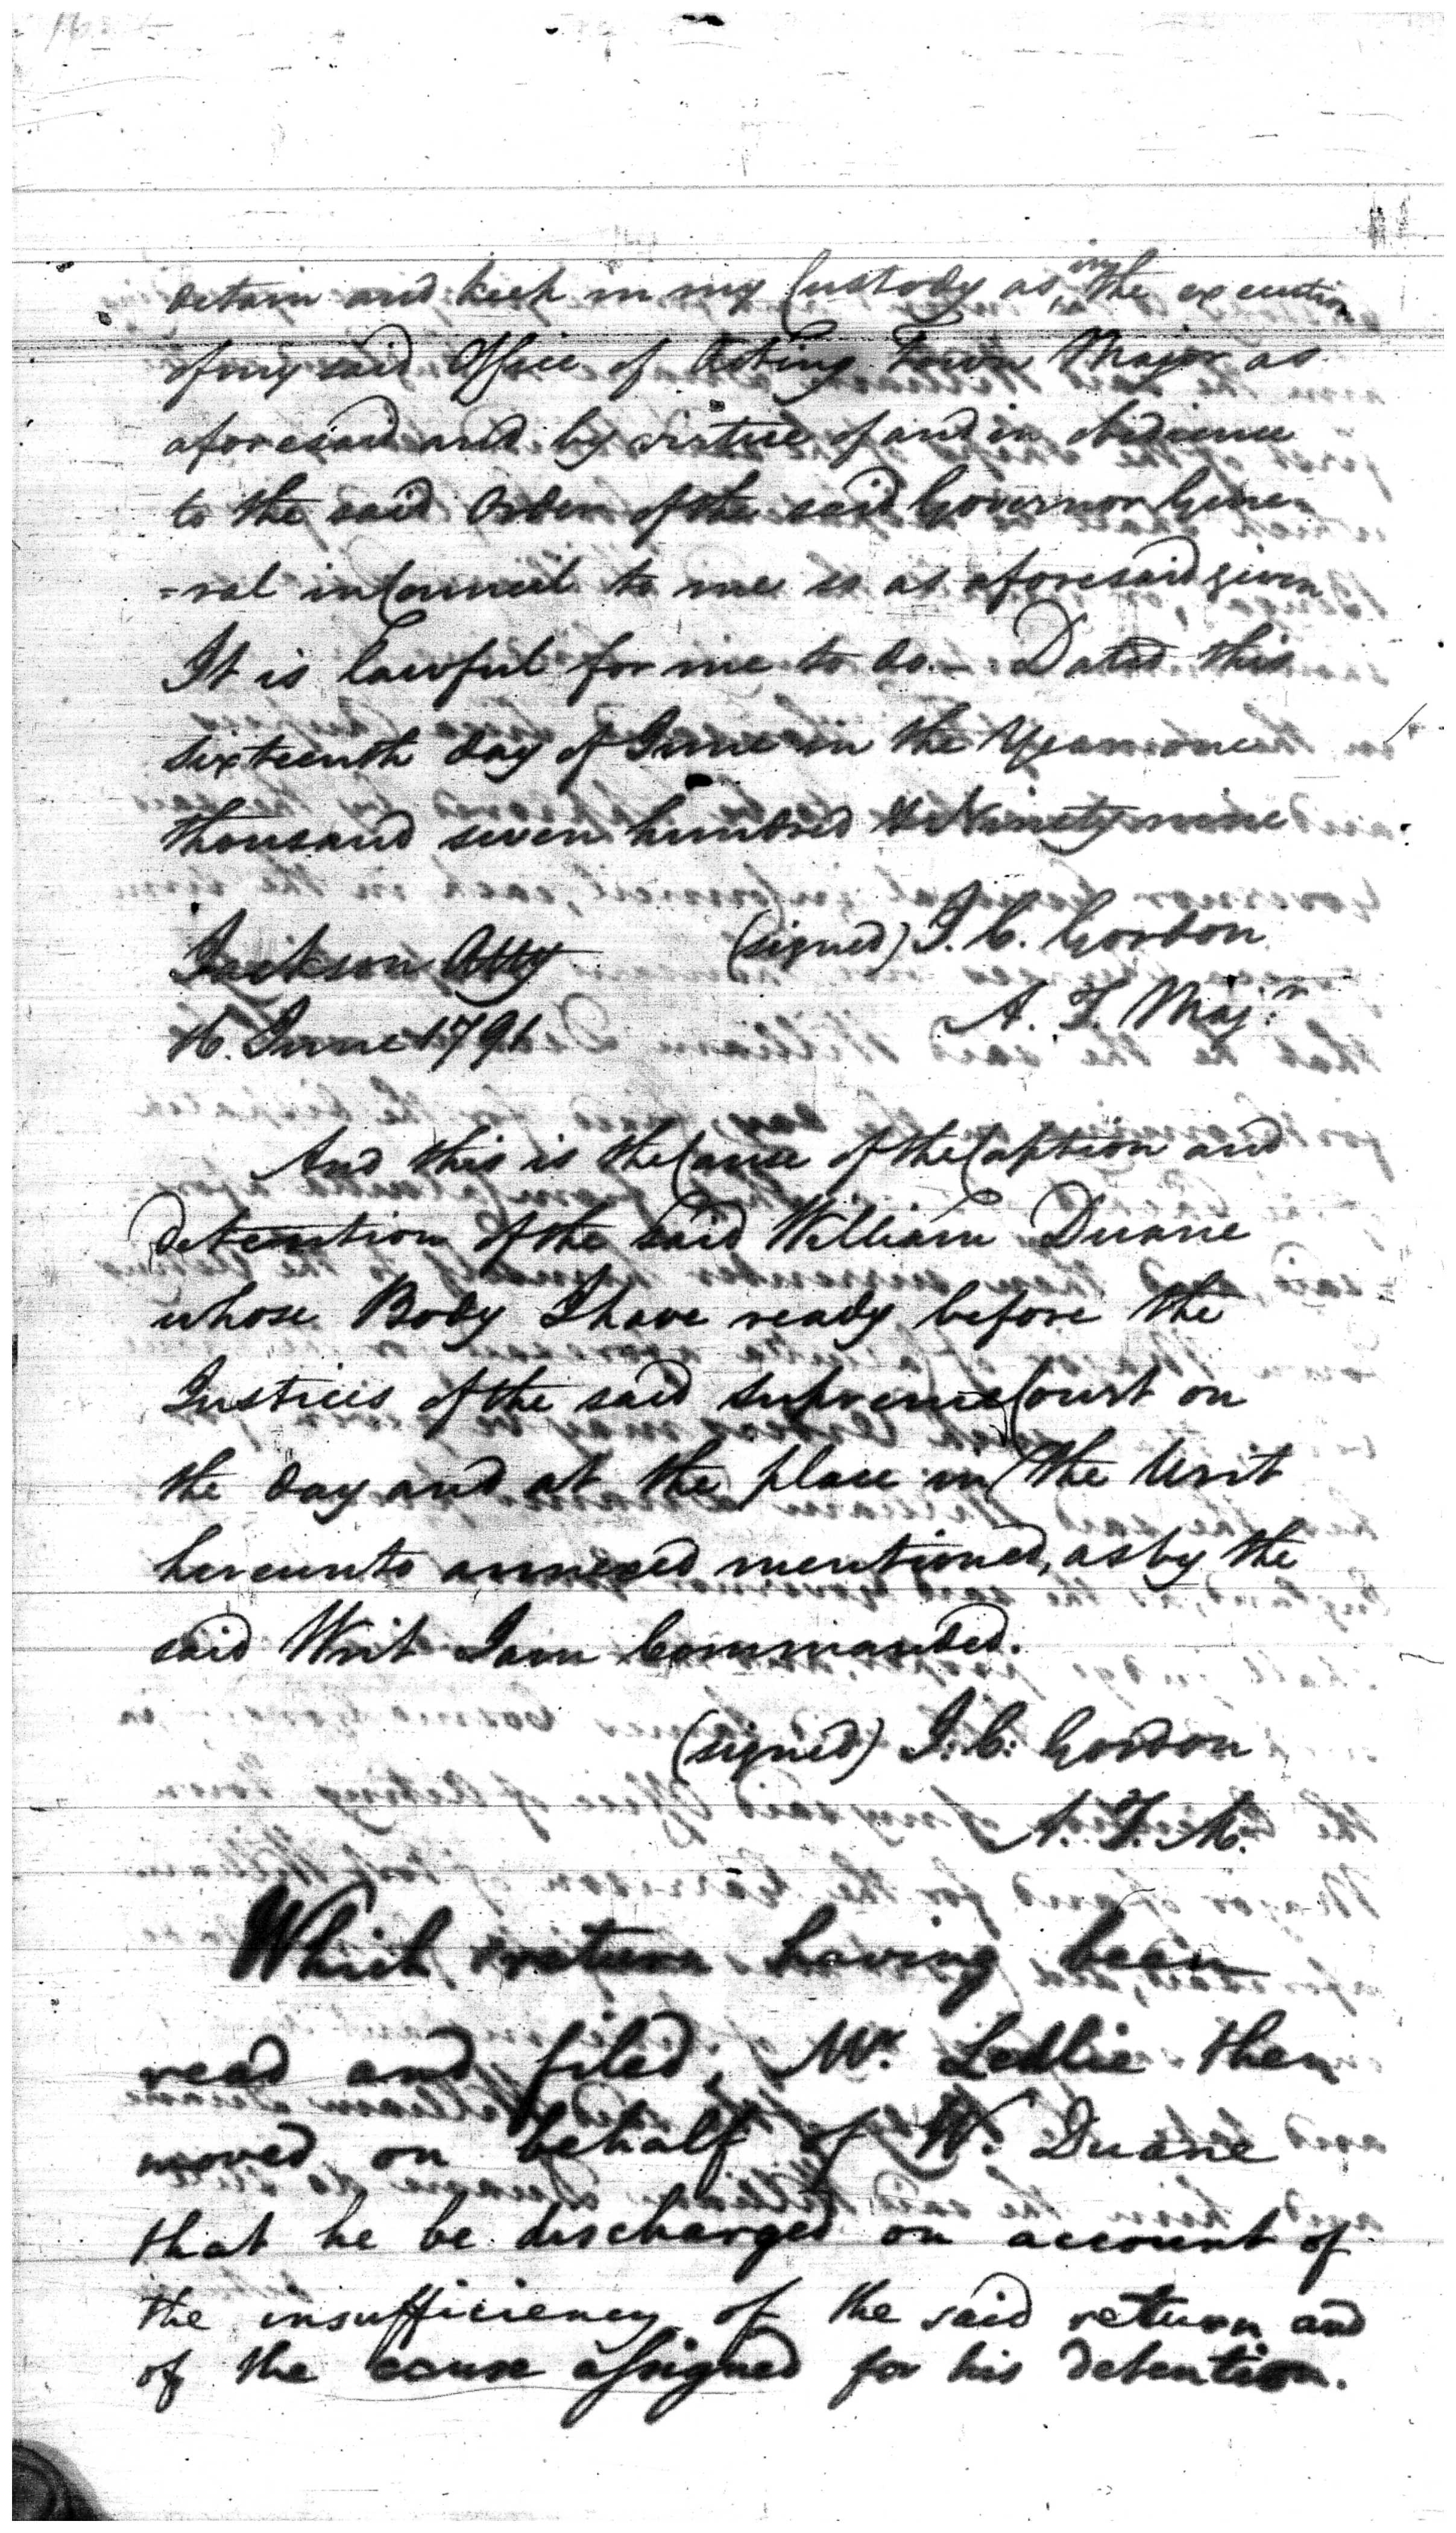 detain and keep in my Custody as in the execution
of my said Office of Acting Town Major as
aforesaid and by virtue of and in obedience
to the said Order of the said Governor Gene-
=ral in Council to me so as aforesaid given
It is lawful for me to do. Dated this
sixteenth day of June in the Year one
thousand seven hundred & Ninety nine
(signed) J. C. Gordon
Jackson Atty
A. T. Majr.
16. June 1791
And this is the Cause of the Caption and
detention of the said William Duane
whose Body I have ready before the
Justices of the said Supreme Court on
the day and at the place in the Writ
hereunto annexed mentioned, as by the
said Writ I am Commanded.
(signed) J. C. Gordon
A. T. M.
Which return having been
read and filed, Mr. Ledlie then
moved on behalf of W. Duane
that he be discharged on account of
the insufficiency of the said return and
of the cause assigned for his detention.